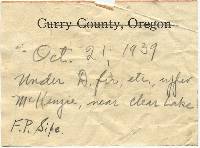 Curry County, Oregon
Oct. 21, 1939
Under D. fir, etc, upper
McKenzie, near Clear Lake
F.P. Sipe.